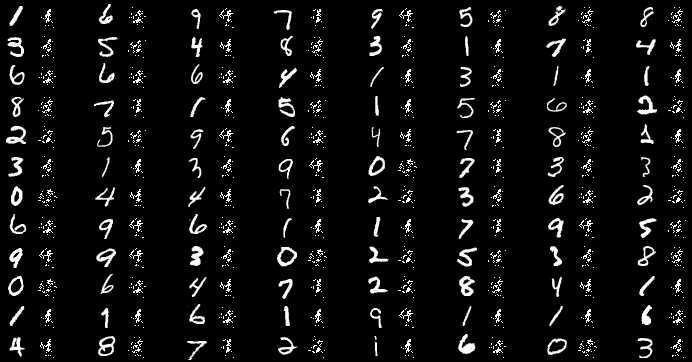 1 6 9 7 9 5 8 8
3 5 4 8 3 1 7 4
6 6 6 4 1 3 1 1
8 7 1 5 1 5 6 2
2 5 9 6 4 7 8 1
3 1 3 9 0 7 3 3
0 4 4 7 2 3 6 2
6 9 6 1 1 7 9 5
9 9 3 0 2 5 3 8
0 6 4 7 2 8 4 1
1 1 6 1 9 1 1 6
4 8 7 2 1 6 0 3